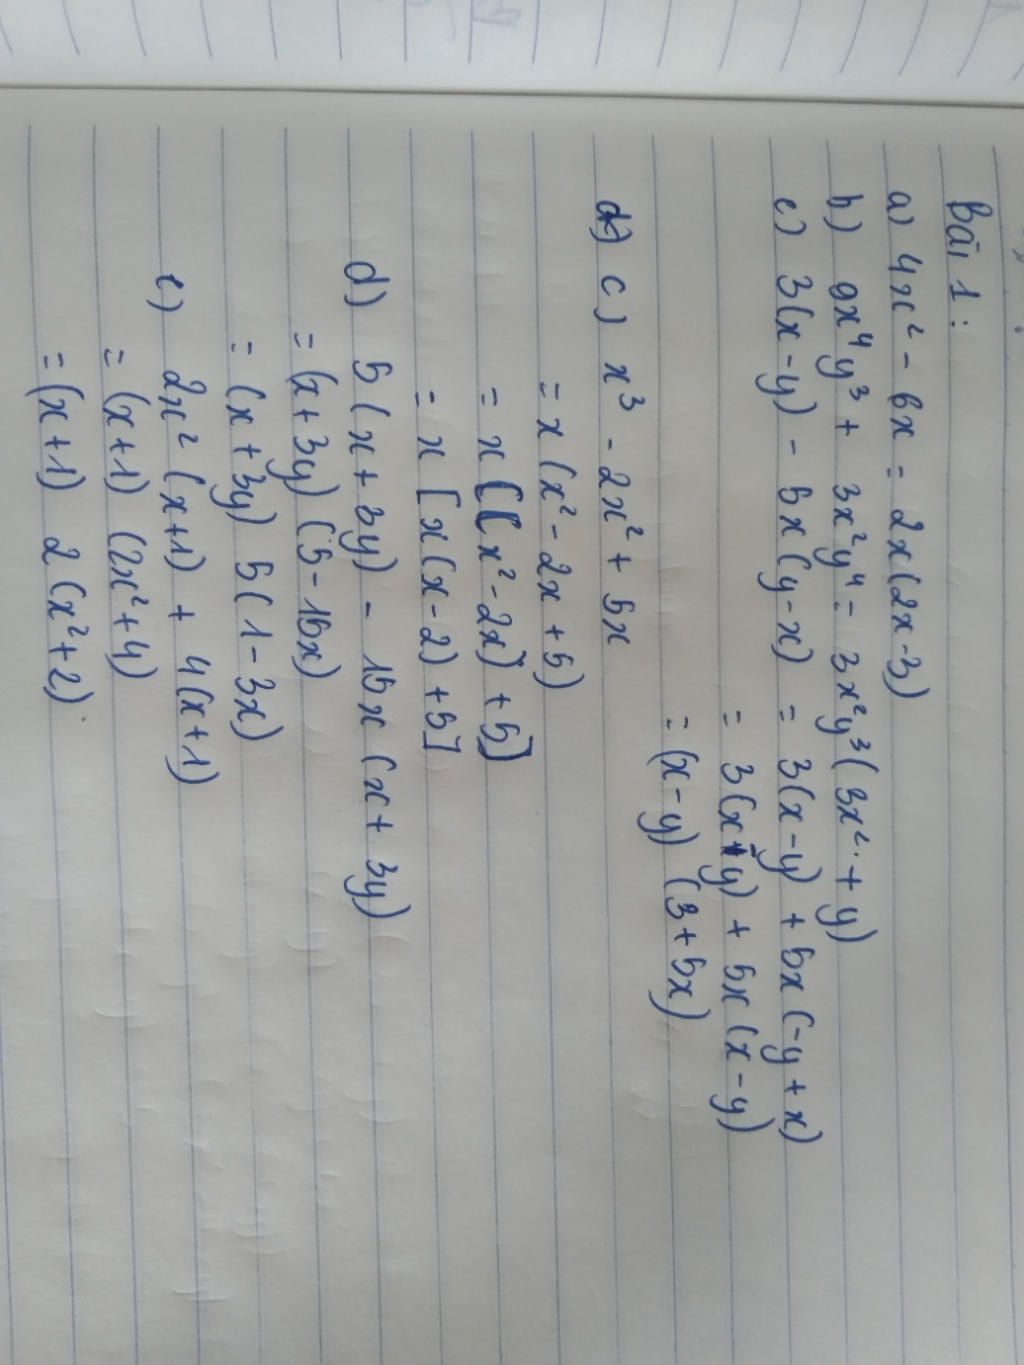 Bài 1:
a) 4x² - 6x = 2x(2x-3)
b) 9x⁴y³ + 3x²y⁴ = 3x²y³(3x² + y)
c) 3(x-y) - 5x(y-x) = 3(x-y) + 5x(-y+x)
= 3(x-y) + 5x(x-y)
= (x-y) (3+5x)
c) x³ - 2x² + 5x
= x(x² - 2x + 5)
= x[(x² - 2x) + 5]
= x[x(x-2) + 5]
d) 5(x+3y) - 15x(x+3y)
= (x+3y)(5-15x)
= (x+3y) 5(1-3x)
e) 2x²(x+1) + 4(x+1)
= (x+1) (2x²+4)
= (x+1) 2(x²+2).